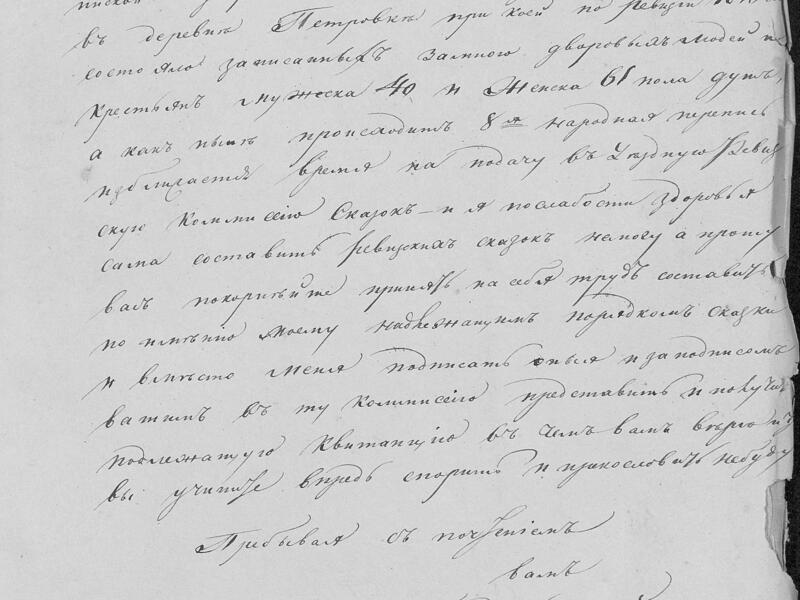 въ деревнѣ Петровкѣ при коей по Ревизіи
состояло записанныхъ за мною дворовыхъ людей и
крестьянъ мужеска 40 и женска 61 пола душъ,
а какъ нынѣ происходитъ 8я народная перепись
приближается время на подачу въ Уездную Ревиз
скую Коммисію Сказокъ – и я послабости здоровья
сама составить ревизскихъ сказокъ немогу а прошу
васъ покорнѣйше принять на себя трудъ составить
по имѣнію моему надлежащимъ порядкомъ сказки
и вмѣсто меня подписать оныя и за подписомъ
вашимъ въ ту коммисію представить и получить
подлежащую квитанцію въ чемъ вамъ вѣрю и
вы учините впредь спорить и прикословить небуду
Пребывая съ почтеніемъ
вамъ